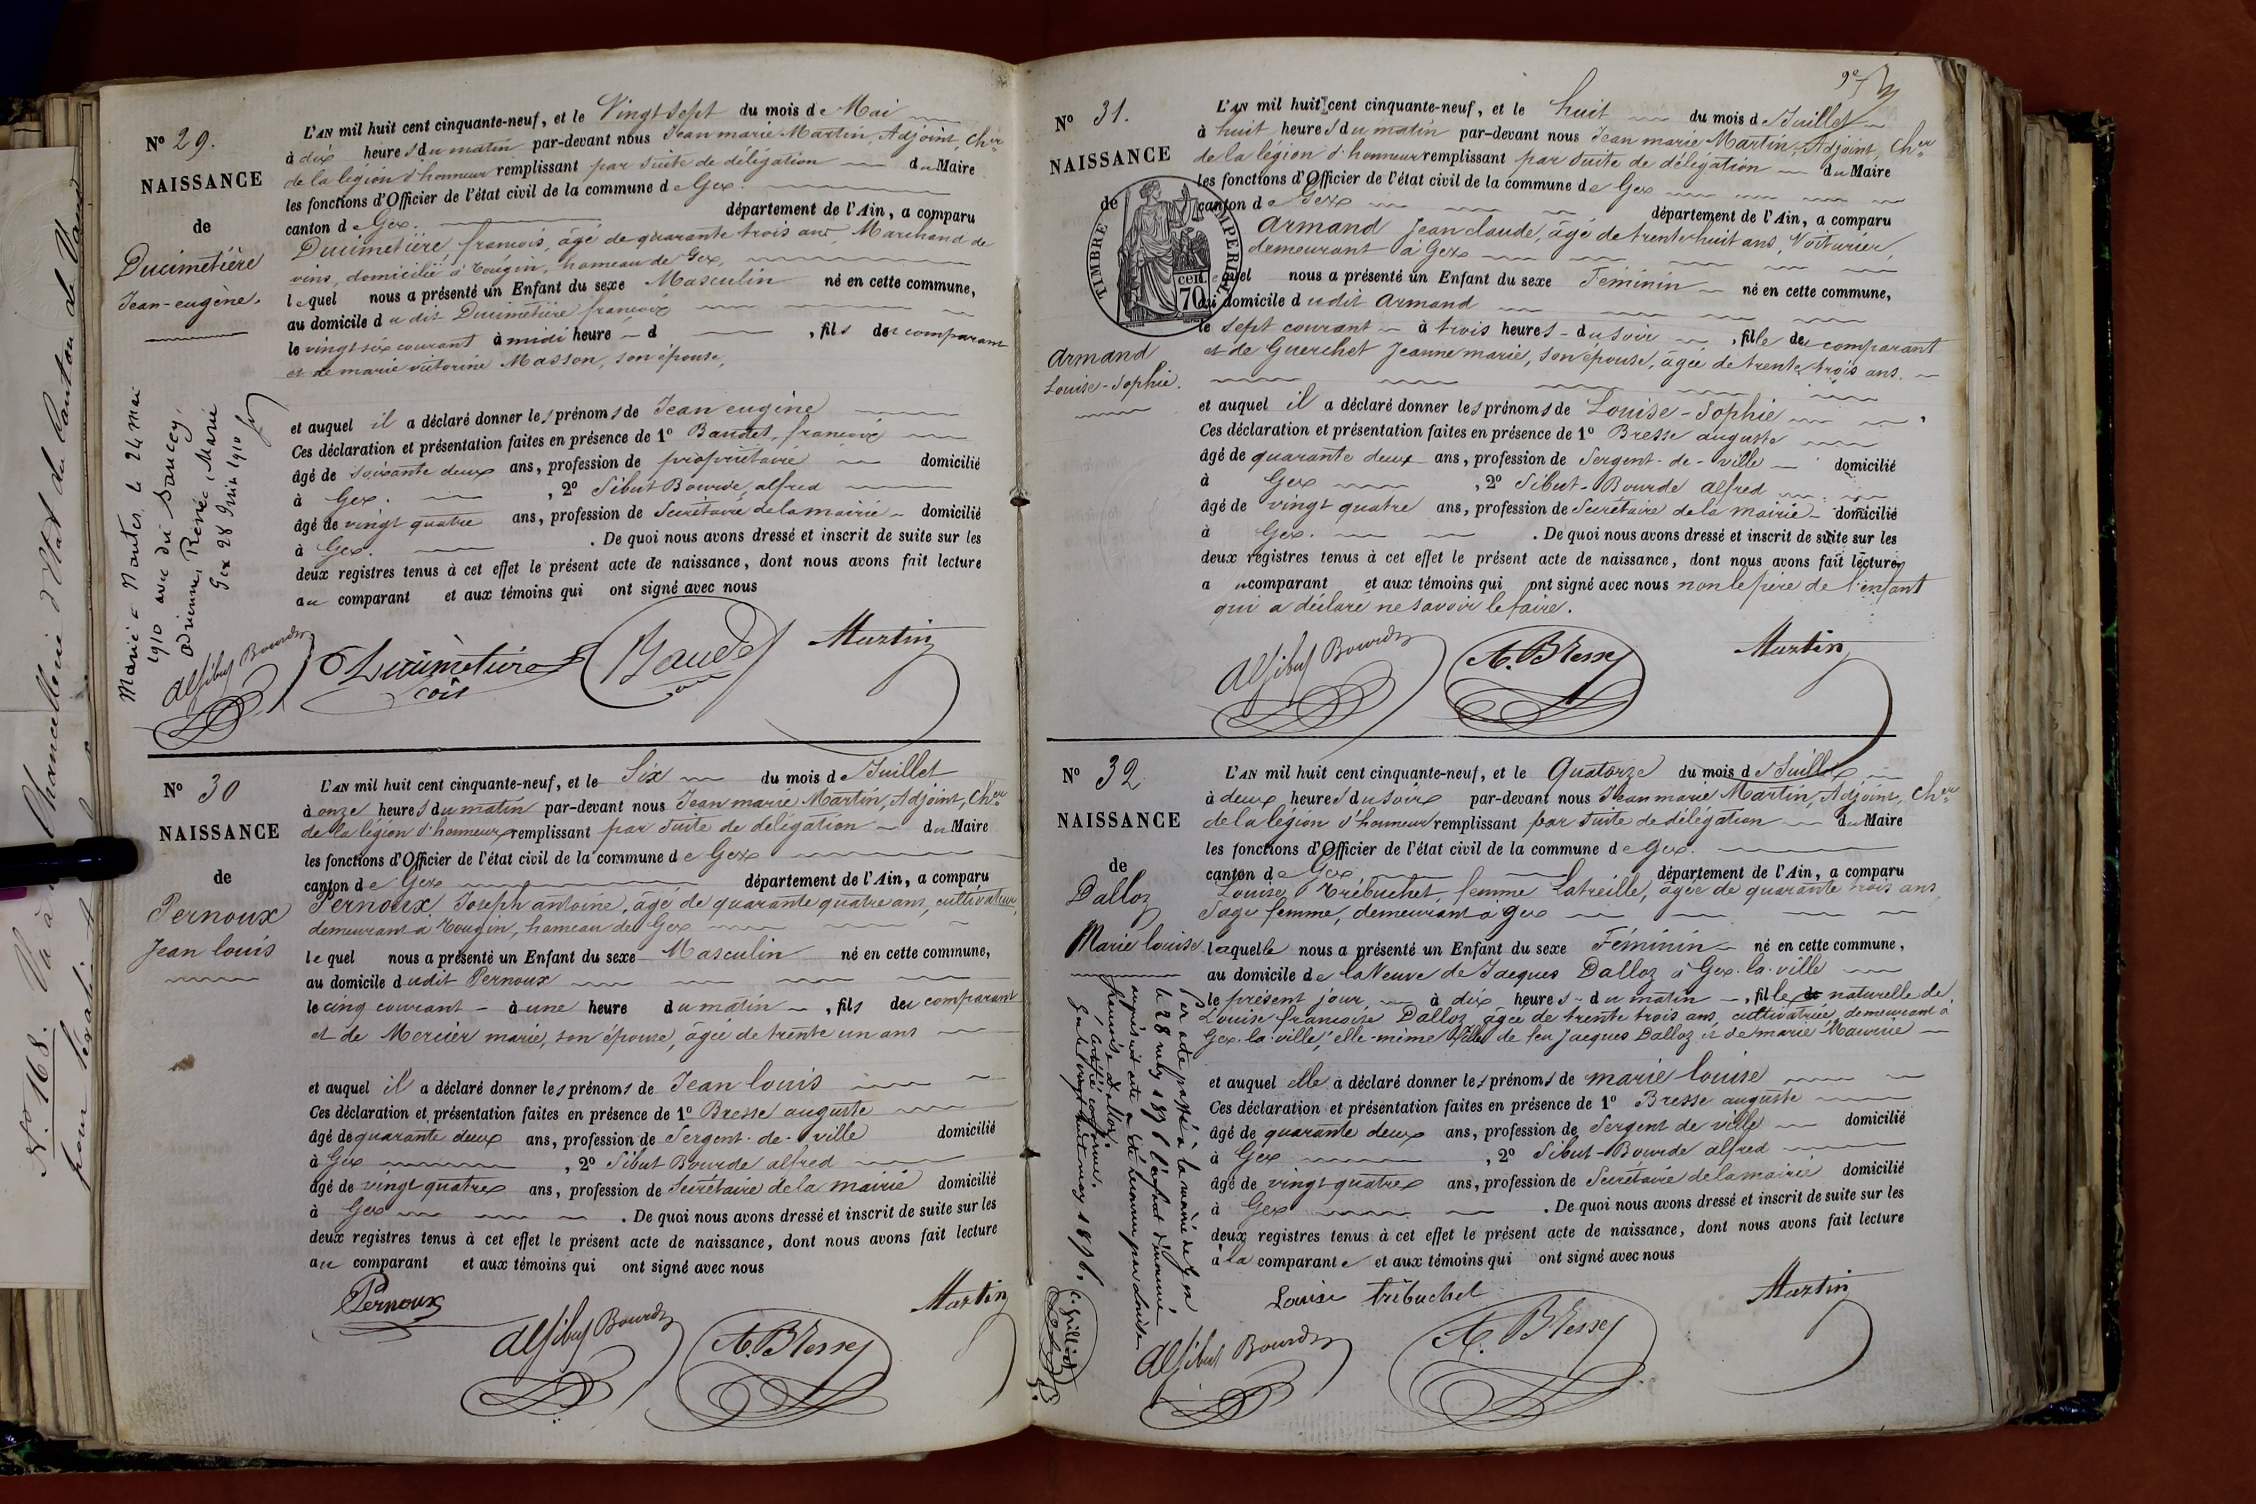 N° 29.
NAISSANCE
de
Ducimetière
Jean-eugène.
L'AN mil huit cent cinquante-neuf, et le Vingt sept du mois de Mai
à dix heures du matin par-devant nous Jean marie Martin, Adjoint, Cher
de la légion d'honneur remplissant par suite de délégation du Maire
les fonctions d'Officier de l'état civil de la commune de Gex.
canton de Gex. département de l'Ain, a comparu
Ducimetière françois, âgé de quarante trois ans, Marchand de
vins, domicilié à Tougin, hameau de Gex,
lequel nous a présenté un Enfant du sexe Masculin né en cette commune,
au domicile du dit Ducimetière françois
le vingt six courant à midi heure d , fils du comparant
et de marie victorine Masson, son épouse,
et auquel il a déclaré donner les prénoms de Jean eugène
Ces déclaration et présentation faites en présence de 1° Baudet, françois
âgé de soixante deux ans, profession de propriétaire domicilié
à Gex. , 2° Sibut Bourde, alfred
âgé de vingt quatre ans, profession de Secrétaire de la mairie domicilié
à Gex. . De quoi nous avons dressé et inscrit de suite sur les
deux registres tenus à cet effet le présent acte de naissance, dont nous avons fait lecture
au comparant et aux témoins qui ont signé avec nous
Marié à Nantes le 24 mai
1910 avec du Sancey,
Adrienne, Renée, Marie
Gex 28 Juin 1910
Alf Sibut Bourde Ducimetière Baudet Martin
çois
N° 30
NAISSANCE
de
Pernoux
Jean louis
L'AN mil huit cent cinquante-neuf, et le Six du mois de Juillet
à onze heures du matin par-devant nous Jean marie Martin, Adjoint, Cher
de la légion d'honneur remplissant par suite de délégation du Maire
les fonctions d'Officier de l'état civil de la commune de Gex
canton de Gex département de l'Ain, a comparu
Pernoux Joseph antoine, âgé de quarante quatre ans, cultivateur,
demeurant à Tougin, hameau de Gex
lequel nous a présenté un Enfant du sexe Masculin né en cette commune,
au domicile dudit Pernoux
le cinq courant à une heure du matin , fils du comparant
et de Mercier marie, son épouse, âgée de trente un ans
et auquel il a déclaré donner les prénoms de Jean louis
Ces déclaration et présentation faites en présence de 1° Bresse auguste
âgé de quarante deux ans, profession de Sergent-de-ville domicilié
à Gex , 2° Sibut Bourde alfred
âgé de vingt quatre ans, profession de Secrétaire de la mairie domicilié
à Gex . De quoi nous avons dressé et inscrit de suite sur les
deux registres tenus à cet effet le présent acte de naissance, dont nous avons fait lecture
au comparant et aux témoins qui ont signé avec nous
Pernoux Alf Sibut Bourde A. Bresse Martin
N° 168.
pour légali
Chancellerie d'Etat du Canton de Vaud
N° 31.
NAISSANCE
de
TIMBRE IMPERIAL
70 cen.
Armand
Louise-Sophie.
L'AN mil huit cent cinquante-neuf, et le huit du mois de Juillet
à huit heures du matin par-devant nous Jean marie Martin, Adjoint, Cher
de la légion d'honneur remplissant par suite de délégation du Maire
les fonctions d'Officier de l'état civil de la commune de Gex
canton de Gex département de l'Ain, a comparu
Armand Jean claude, âgé de trente huit ans, Voiturier,
demeurant à Gex
lequel nous a présenté un Enfant du sexe Féminin né en cette commune,
au domicile dudit Armand
le sept courant à trois heures du soir , fille du comparant
et de Guerchet Jeanne marie, son épouse, âgée de trente trois ans.
et auquel il a déclaré donner les prénoms de Louise-Sophie
Ces déclaration et présentation faites en présence de 1° Bresse auguste
âgé de quarante deux ans, profession de Sergent-de-ville domicilié
à Gex , 2° Sibut-Bourde alfred
âgé de vingt quatre ans, profession de Secrétaire de la mairie domicilié
à Gex. . De quoi nous avons dressé et inscrit de suite sur les
deux registres tenus à cet effet le présent acte de naissance, dont nous avons fait lecture
au comparant et aux témoins qui ont signé avec nous non le père de l'enfant
qui a déclaré ne savoir le faire.
Alf Sibut Bourde A. Bresse Martin
N° 32
NAISSANCE
de
Dalloz
Marie louise
L'AN mil huit cent cinquante-neuf, et le Quatorze du mois de Juillet
à deux heures du soir par-devant nous Jean marie Martin, Adjoint, Cher
de la légion d'honneur remplissant par suite de délégation du Maire
les fonctions d'Officier de l'état civil de la commune de Gex.
canton de Gex département de l'Ain, a comparu
Louise Trébuchet, femme Latreille, âgée de quarante trois ans
Sage femme, demeurant à Gex
laquelle nous a présenté un Enfant du sexe Féminin né en cette commune,
au domicile de la Veuve de Jacques Dalloz à Gex-la-ville
le présent jour à dix heures du matin , fille naturelle de
Louise françoise Dalloz âgée de trente trois ans, cultivatrice, demeurant à
Gex-la-ville, elle-même fille de feu Jacques Dalloz et de marie Maurine
et auquel elle a déclaré donner les prénoms de marie louise
Ces déclaration et présentation faites en présence de 1° Bresse auguste
âgé de quarante deux ans, profession de Sergent de ville domicilié
à Gex , 2° Sibut-Bourde alfred
âgé de vingt quatre ans, profession de Secrétaire de la mairie domicilié
à Gex . De quoi nous avons dressé et inscrit de suite sur les
deux registres tenus à cet effet le présent acte de naissance, dont nous avons fait lecture
à la comparante et aux témoins qui ont signé avec nous
Par acte passé à la mairie de Gex
le 28 may 1876 l'enfant dénommé
au présent acte a été reconnu par Louise
françoise Dalloz.
Certifié conforme.
Gex le vingt huit may 1876.
Louise trébuchet Martin
Alf Sibut Bourde A. Bresse